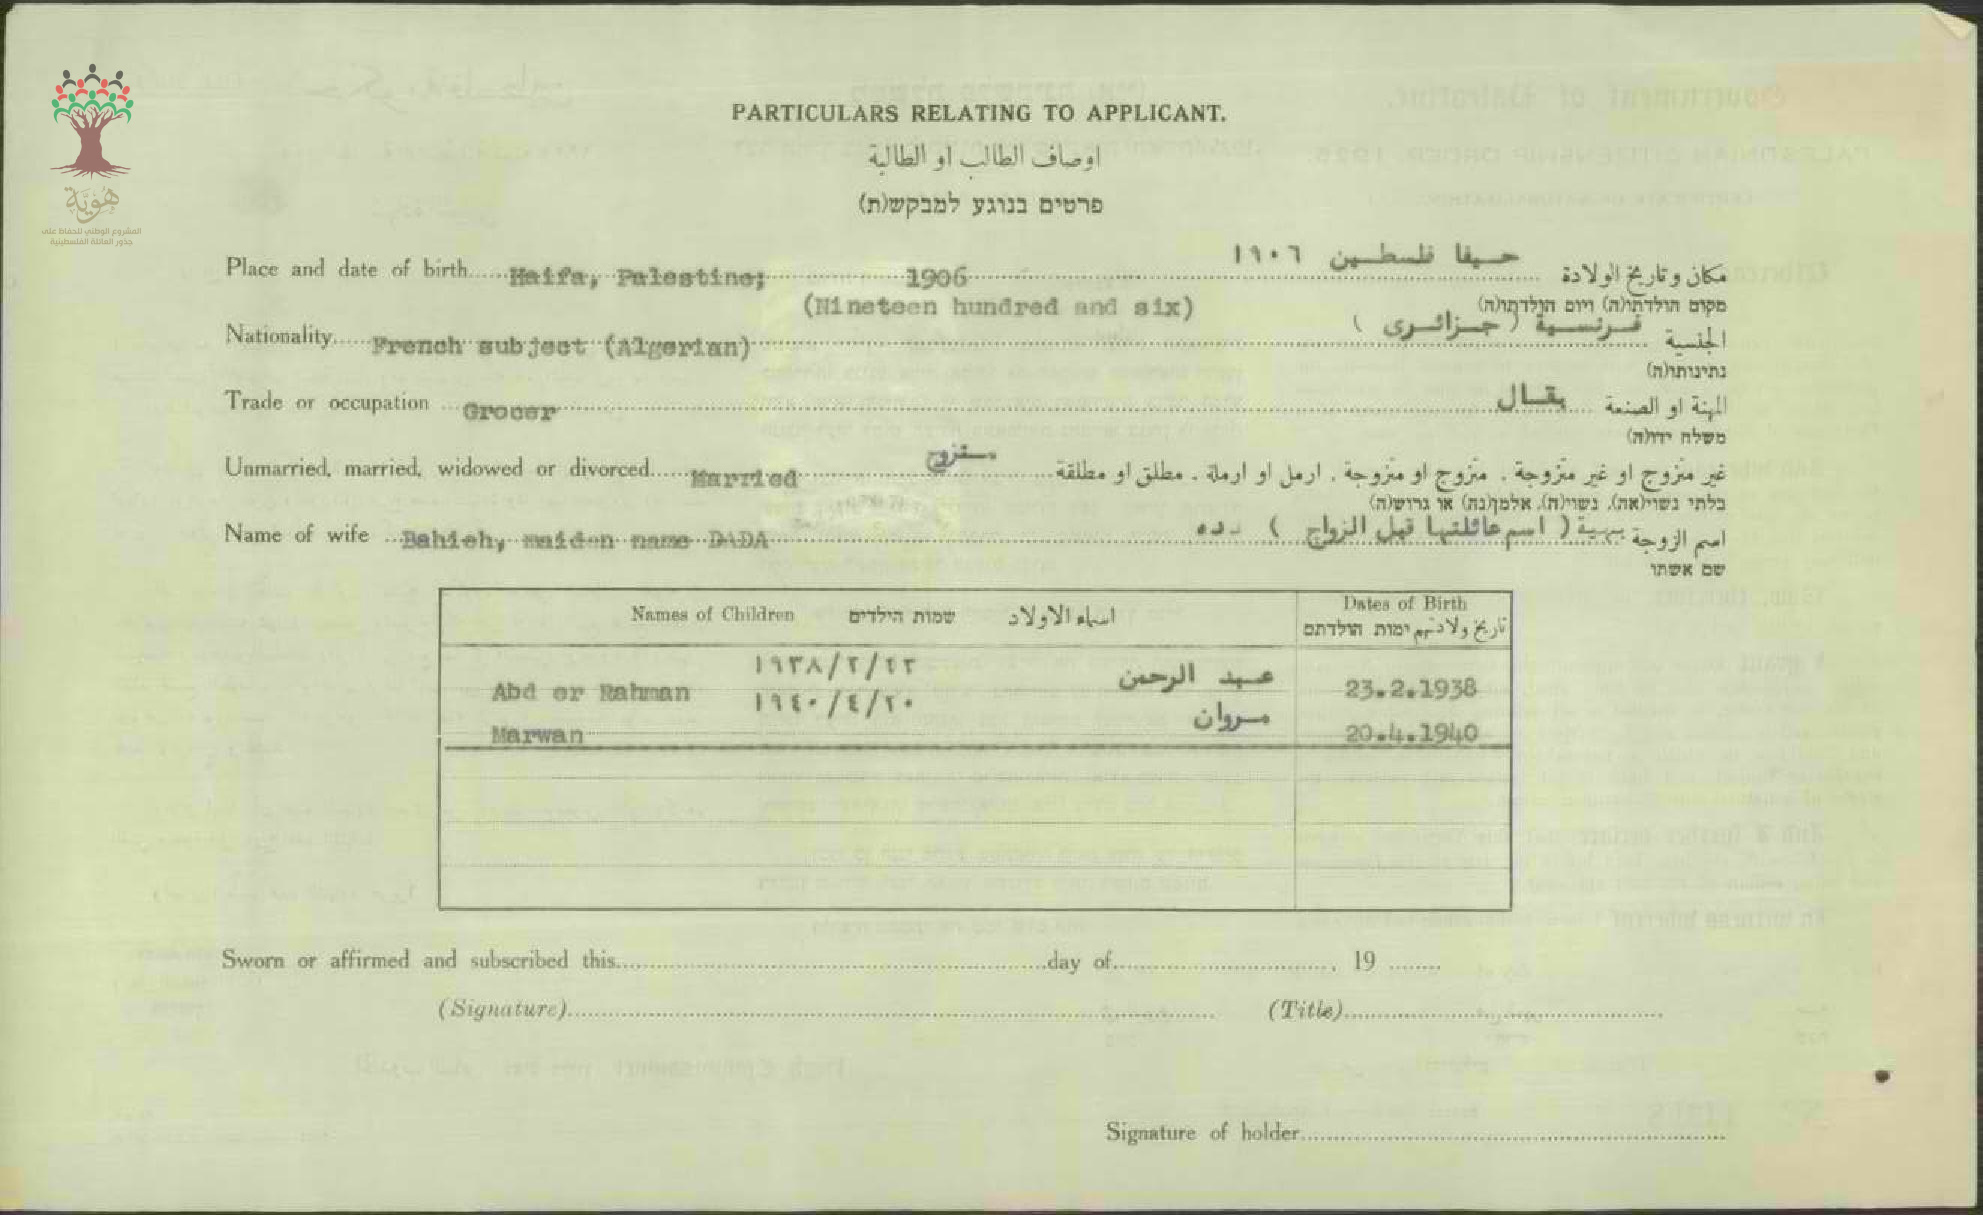 هُويَّة
المشروع الوطني للحفاظ على
جذور العائلة الفلسطينية
PARTICULARS RELATING TO APPLICANT.
اوصاف الطالب او الطالبة
פרטים בנוגע למבקש(ת)
Place and date of birth Haifa, Palestine; 1906 حيفا فلسطين ١٩٠٦ مكان وتاريخ الولادة
(Nineteen hundred and six) מקום הולדתו(ה) ויום הולדתו(ה)
Nationality French subject (Algerian) فرنسية ( جزائرى ) الجنسية
נתינותו(ה)
Trade or occupation Grocer بقال المهنة او الصنعة
משלח ידו(ה)
Unmarried, married, widowed or divorced Married متزوج غير متزوج او غير متزوجة . متزوج او متزوجة . ارمل او ارملة . مطلق او مطلقة
בלתי נשוי(אה), נשוי(ה), אלמן(נה) או גרוש(ה)
Name of wife Bahieh, maiden name DADA بهية ( اسم عائلتها قبل الزواج ) دده اسم الزوجة
שם אשתו
Names of Children שמות הילדים اسماء الاولاد Dates of Birth
تاريخ ولادتهم ימות הולדתם
Abd er Rahman ١٩٣٨/٢/٢٣ عبد الرحمن 23.2.1938
Marwan ١٩٤٠/٤/٢٠ مروان 20.4.1940
Sworn or affirmed and subscribed this day of , 19
(Signature) (Title)
Signature of holder